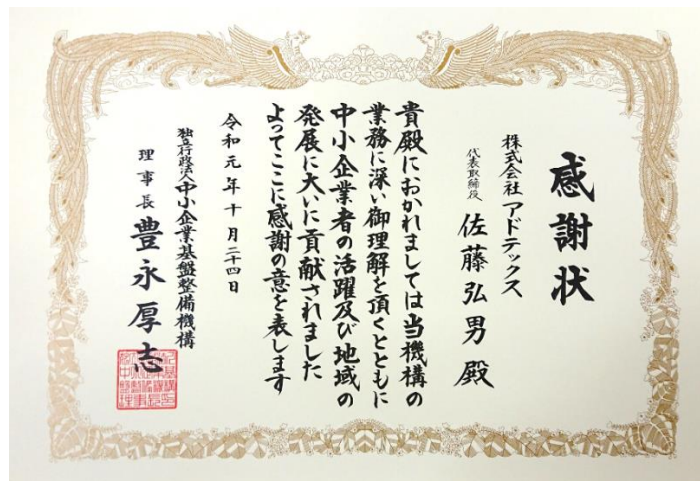 感謝状
株式会社アドテックス
代表取締役 佐藤弘男 殿
貴殿におかれましては当機構の
業務に深い御理解を頂くとともに
中小企業者の活躍及び地域の
発展に大いに貢献されました
よってここに感謝の意を表します
令和元年十月二十四日
独立行政法人中小企業基盤整備機構
理事長 豊永厚志